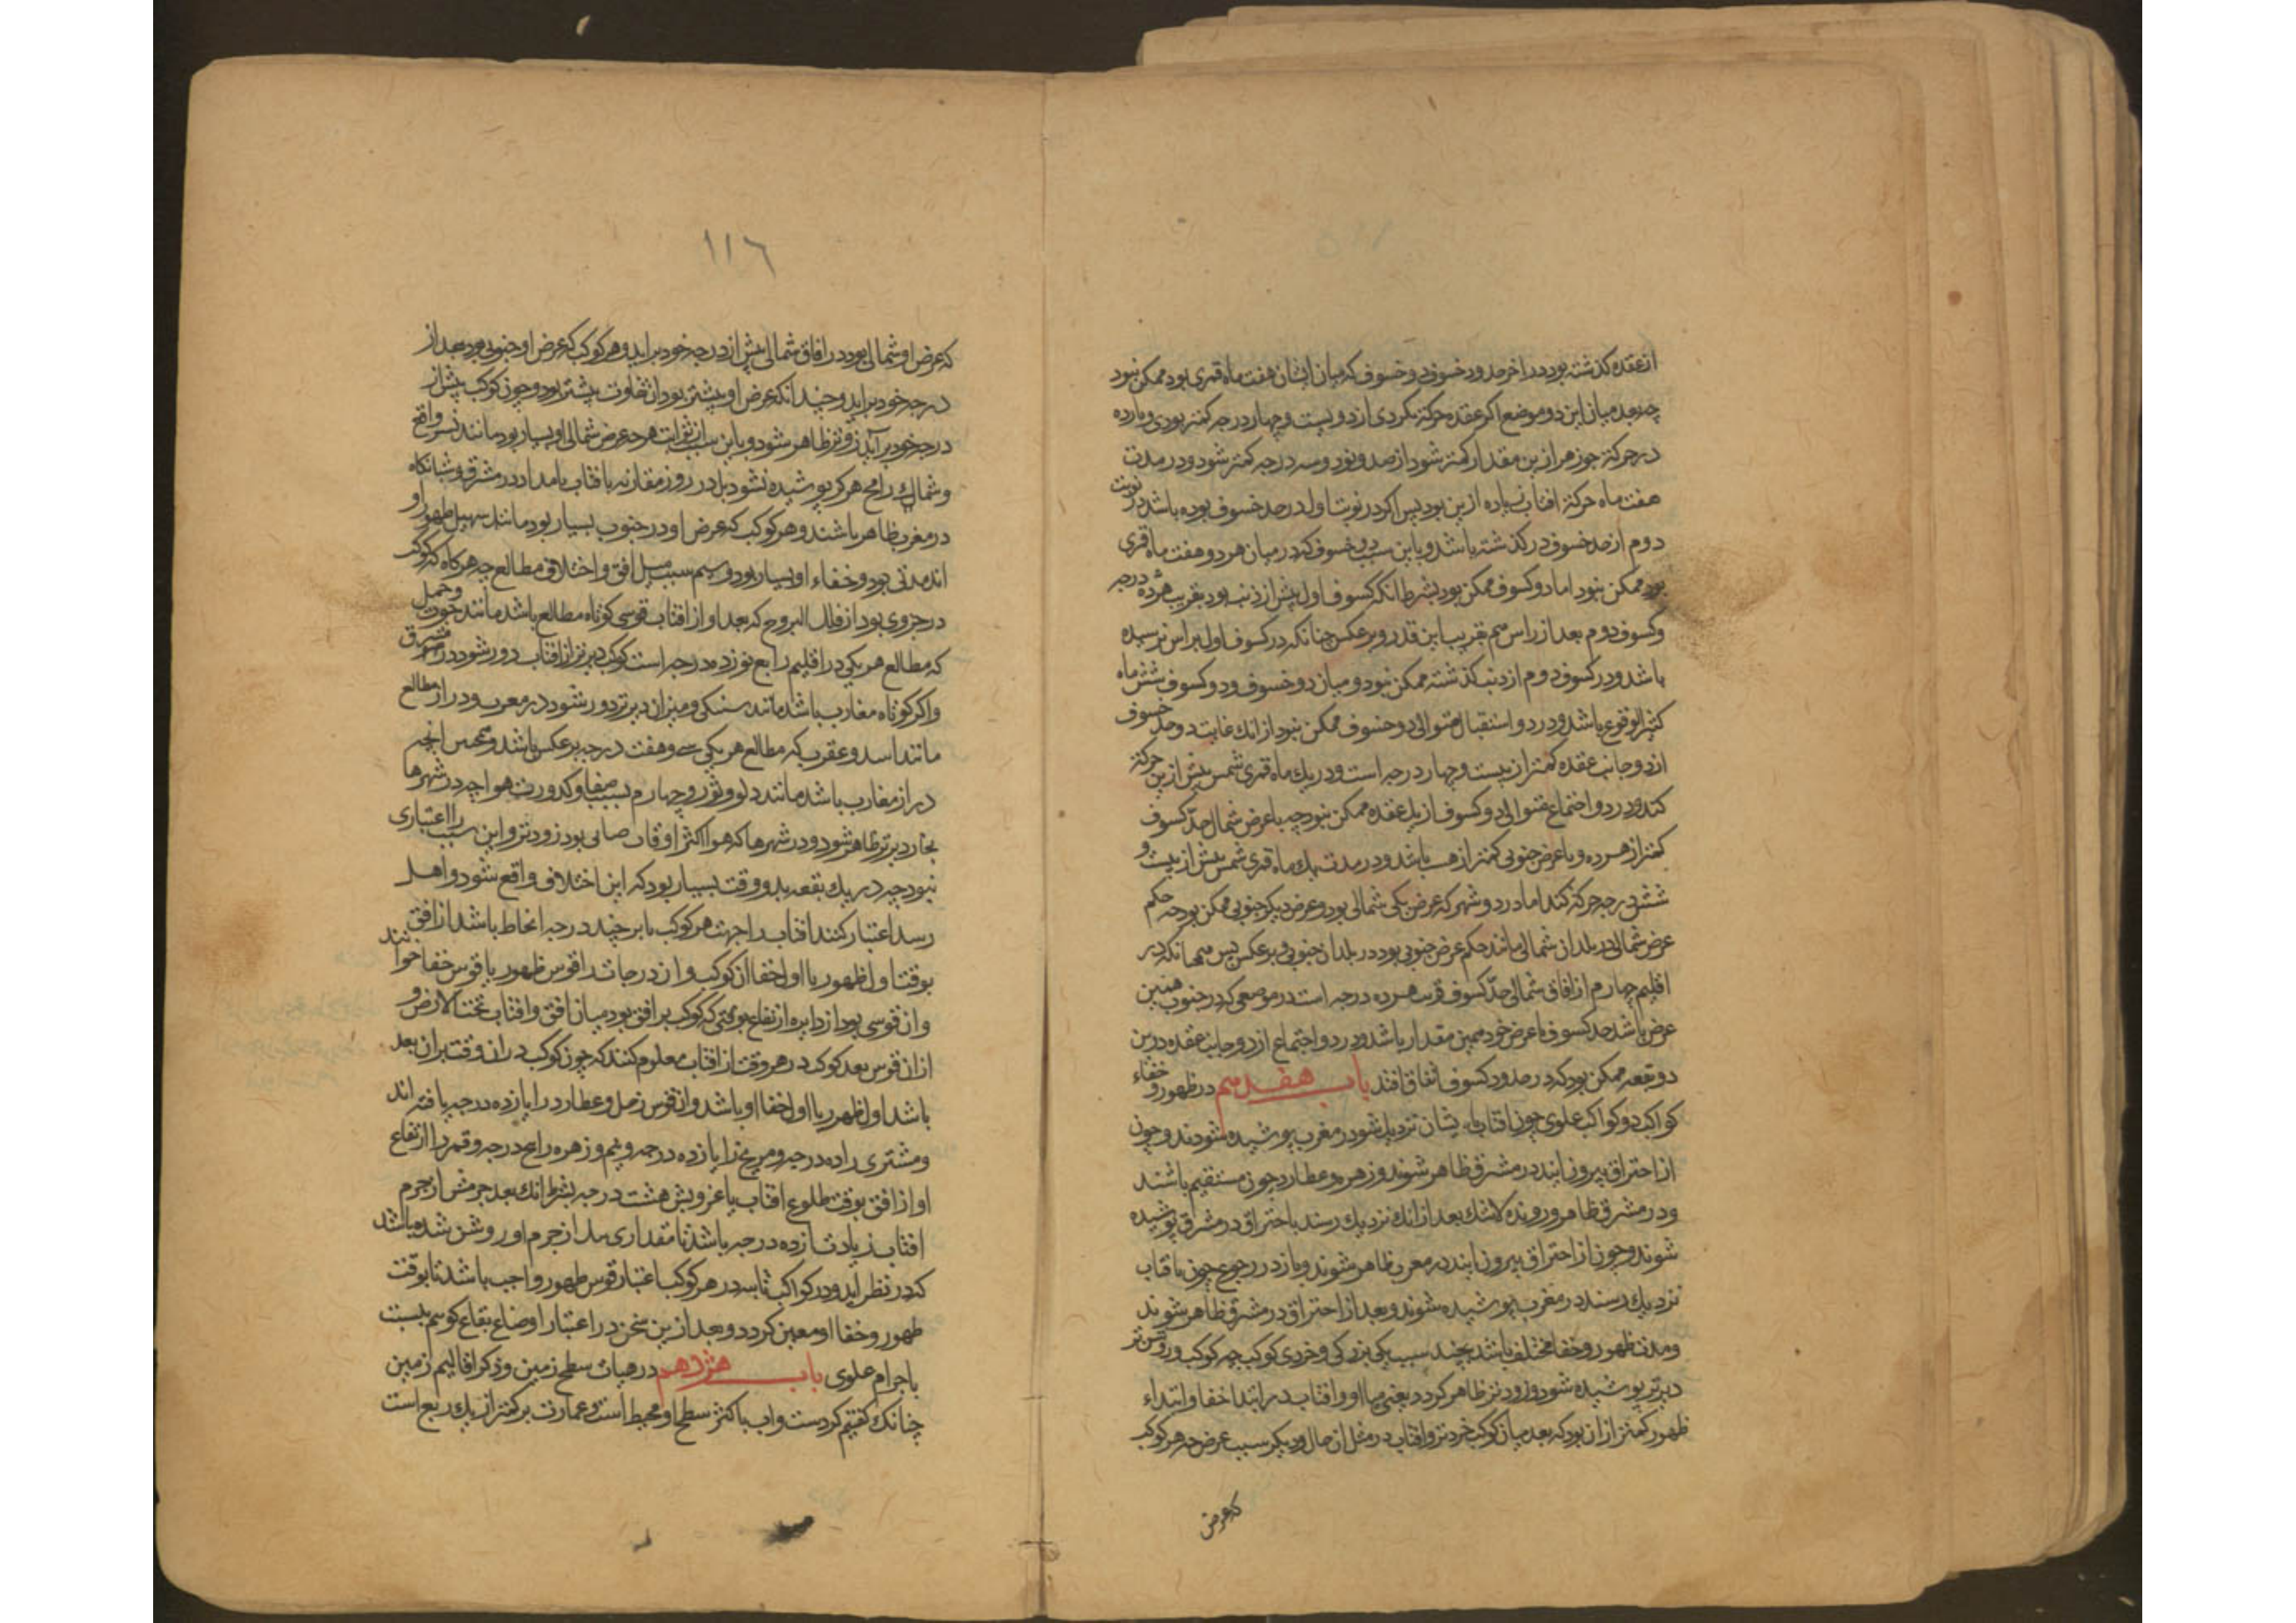 از عقده گذشته بود در اخر حدود خسوف و دو خسوف که میان ایشان هفت ماه قمری بود ممکن نبود
چه بعد میان این دو موضع اگر عقده حرکة نکردی از دویست و چهار درجه کمتر بودی و یازده
درجه حرکة جوزهر ازین مقدار کمتر شود از صد و نود و سه درجه کمتر شود و در مدت
هفت ماه حرکة افتاب زیاده ازین بود پس اگر در نوبت اول در حد خسوف بوده باشد در نوبت
دوم از حد خسوف در گذشته باشد و باین سبب دو خسوف که در میان هر دو هفت ماه قمری
بود ممکن نبود اما دو کسوف ممکن بود بشرط انکه کسوف اول پیش از ذنب بود بقریب هژده درجه
و کسوف دوم بعد از راس هم بقریب این قدر و برعکس چنانکه در کسوف اول براس نرسیده
باشد و در کسوف دوم از ذنب گذشته ممکن نبود و میان دو خسوف و دو کسوف شش ماه
کثیر الوقوع باشد و در دو استقبال متوالی دو خسوف ممکن نبود از انک غایت دو حد خسوف
از دو جانب عقده کمتر از بیست و چهار درجه است و در یک ماه قمری شمس بیش ازین حرکة
کند و در دو اجتماع متوالی دو کسوف از یک عقده ممکن نبود چه با عرض شمال حد کسوف
کمتر از هژده و با عرض جنوبی کمتر از هشت باشد و در مدت یک ماه قمری شمس بیش از بیست و
شش درجه حرکة کند اما در دو شهر که عرض یکی شمالی بود و عرض دیگر جنوبی ممکن بود چه حکم
عرض شمالی در بلدان شمالی مانند حکم عرض جنوبی بود در بلدان جنوبی و برعکس پس همچانکه در
اقلیم چهارم از افاق شمالی حد کسوف قریب هژده درجه است در موضعی که در جنوب همین
عرض باشد حد کسوف با عرض خود همین مقدار باشد و در دو اجتماع از دو جانب عقده درین
دو بقعه ممکن بود که در حدود کسوف اتفاق افتد باب هفدهم در ظهور و خفاء
کواکب دو کواکب علوی چون افتاب بایشان نزدیک شود در مغرب پوشیده شوند و چون
از احتراق بیرون ایند در مشرق ظاهر شوند و زهره و عطارد چون مستقیم باشند
و در مشرق ظاهر و رونده لاشک بعد از انک نزدیک رسند باحتراق در مشرق پوشیده
شوند و چون از احتراق بیرون ایند در مغرب ظاهر شوند و باز در رجوع چون بافتاب
نزدیک رسند در مغرب پوشیده شوند و بعد از احتراق در مشرق ظاهر شوند
و مدت ظهور و خفا مختلف باشد بچند سبب یکی بزرگی و خردی کوکب چه کوکب روشن تر
دیرتر پوشیده شود و زودتر ظاهر گردد یعنی میان او و افتاب در ابتدا خفا و ابتداء
ظهور کمتر از ان بود که بعد میان کوکب خردتر و افتاب در مثل ان حال و دیگر سبب عرض چه هر کوکب
که عرض
١١٦
که عرض او شمالی بود در افاق شمالی پیش از درجه خود براید و هر کوکب که عرض او جنوبی بود بعد از
درجه خود براید و چندانکه عرض او بیشتر بود ان تفاوت بیشتر بود و چون کوکب پیش از
درجه خود برآید زودتر ظاهر شود و باین سبب از ثوابت هرچه عرض شمالی او بسیار بود مانند نسر واقع
و سماک رامح هرگز پوشیده نشود بل در روز مقارنه با افتاب بامداد در مشرق و شبانگاه
در مغرب ظاهر باشند و هر کوکب که عرض او در جنوب بسیار بود مانند سهیل ظهور او
اند مدتی بود و خفاء او بسیار بود و سیم سبب میل افق و اختلاف مطالع چه هرگاه که کوکب
در جزوی بود از فلک البروج که بعد او از افتاب قوسی کوتاه مطالع باشد مانند حوت و حمل
که مطالع هر یکی در اقلیم رابع نوزده درجه است کوکب دیرتر از افتاب دور شود در مشرق
و اگر کوتاه مغارب باشد مانند سنبله و میزان دیرتر دور شود در مغرب و دراز مطالع
مانند اسد و عقرب که مطالع هر یکی سی و هفت درجه برعکس باشد و همچنین انچه
دراز مغارب باشد مانند دلو و ثور و چهارم بسبب صفا و کدورت هوا چه در شهرها
بخار دیرتر ظاهر شود و در شهرها که هوا اکثر اوقات صافی بود زودتر و این سبب را اعتباری
نبود چه در یک بقعه بدو وقت بسیار بود که این اختلاف واقع شود و اهل
رصد اعتبار کنند افتاب را جهت هر کوکب تا بر چند درجه انحطاط باشد از افق
بوقت اول ظهور یا اول خفا ان کوکب و ان درجات را قوس ظهور یا قوس خفا خوانند
و ان قوسی بود از دایره ارتفاع بوقتی که کوکب بر افق بود میان افق و افتاب تحت الارض و
از ان قوس بعد کوکب در هر وقت از افتاب معلوم کنند که چون کوکب در ان وقت بر ان بعد
باشد اول ظهور یا اول خفا او باشد و ان قوس زحل و عطارد را یازده درجه یافته اند
و مشتری را ده درجه و مریخ را یازده درجه و نیم و زهره را پنج درجه و قمر را ارتفاع
او از افق بوقت طلوع افتاب یا غروبش هشت درجه بشرط انک بعد جرمش از جرم
افتاب زیادت از ده درجه باشد تا مقداری از جرم او روشن شده باشد
که در نظر اید و در کواکب ثابته در هر کوکب اعتبار قوس ظهور واجب باشد تا بوقت
ظهور و خفا او معین گردد و بعد ازین سخن در اعتبار اوضاع بقاع گوییم بنسبت
باجرام علوی باب هژدهم در هیات سطح زمین و ذکر اقالیم زمین
چنانک گفتیم گردست و اب باکثر سطح او محیط است و عمارت بر کمتر از یک ربع است